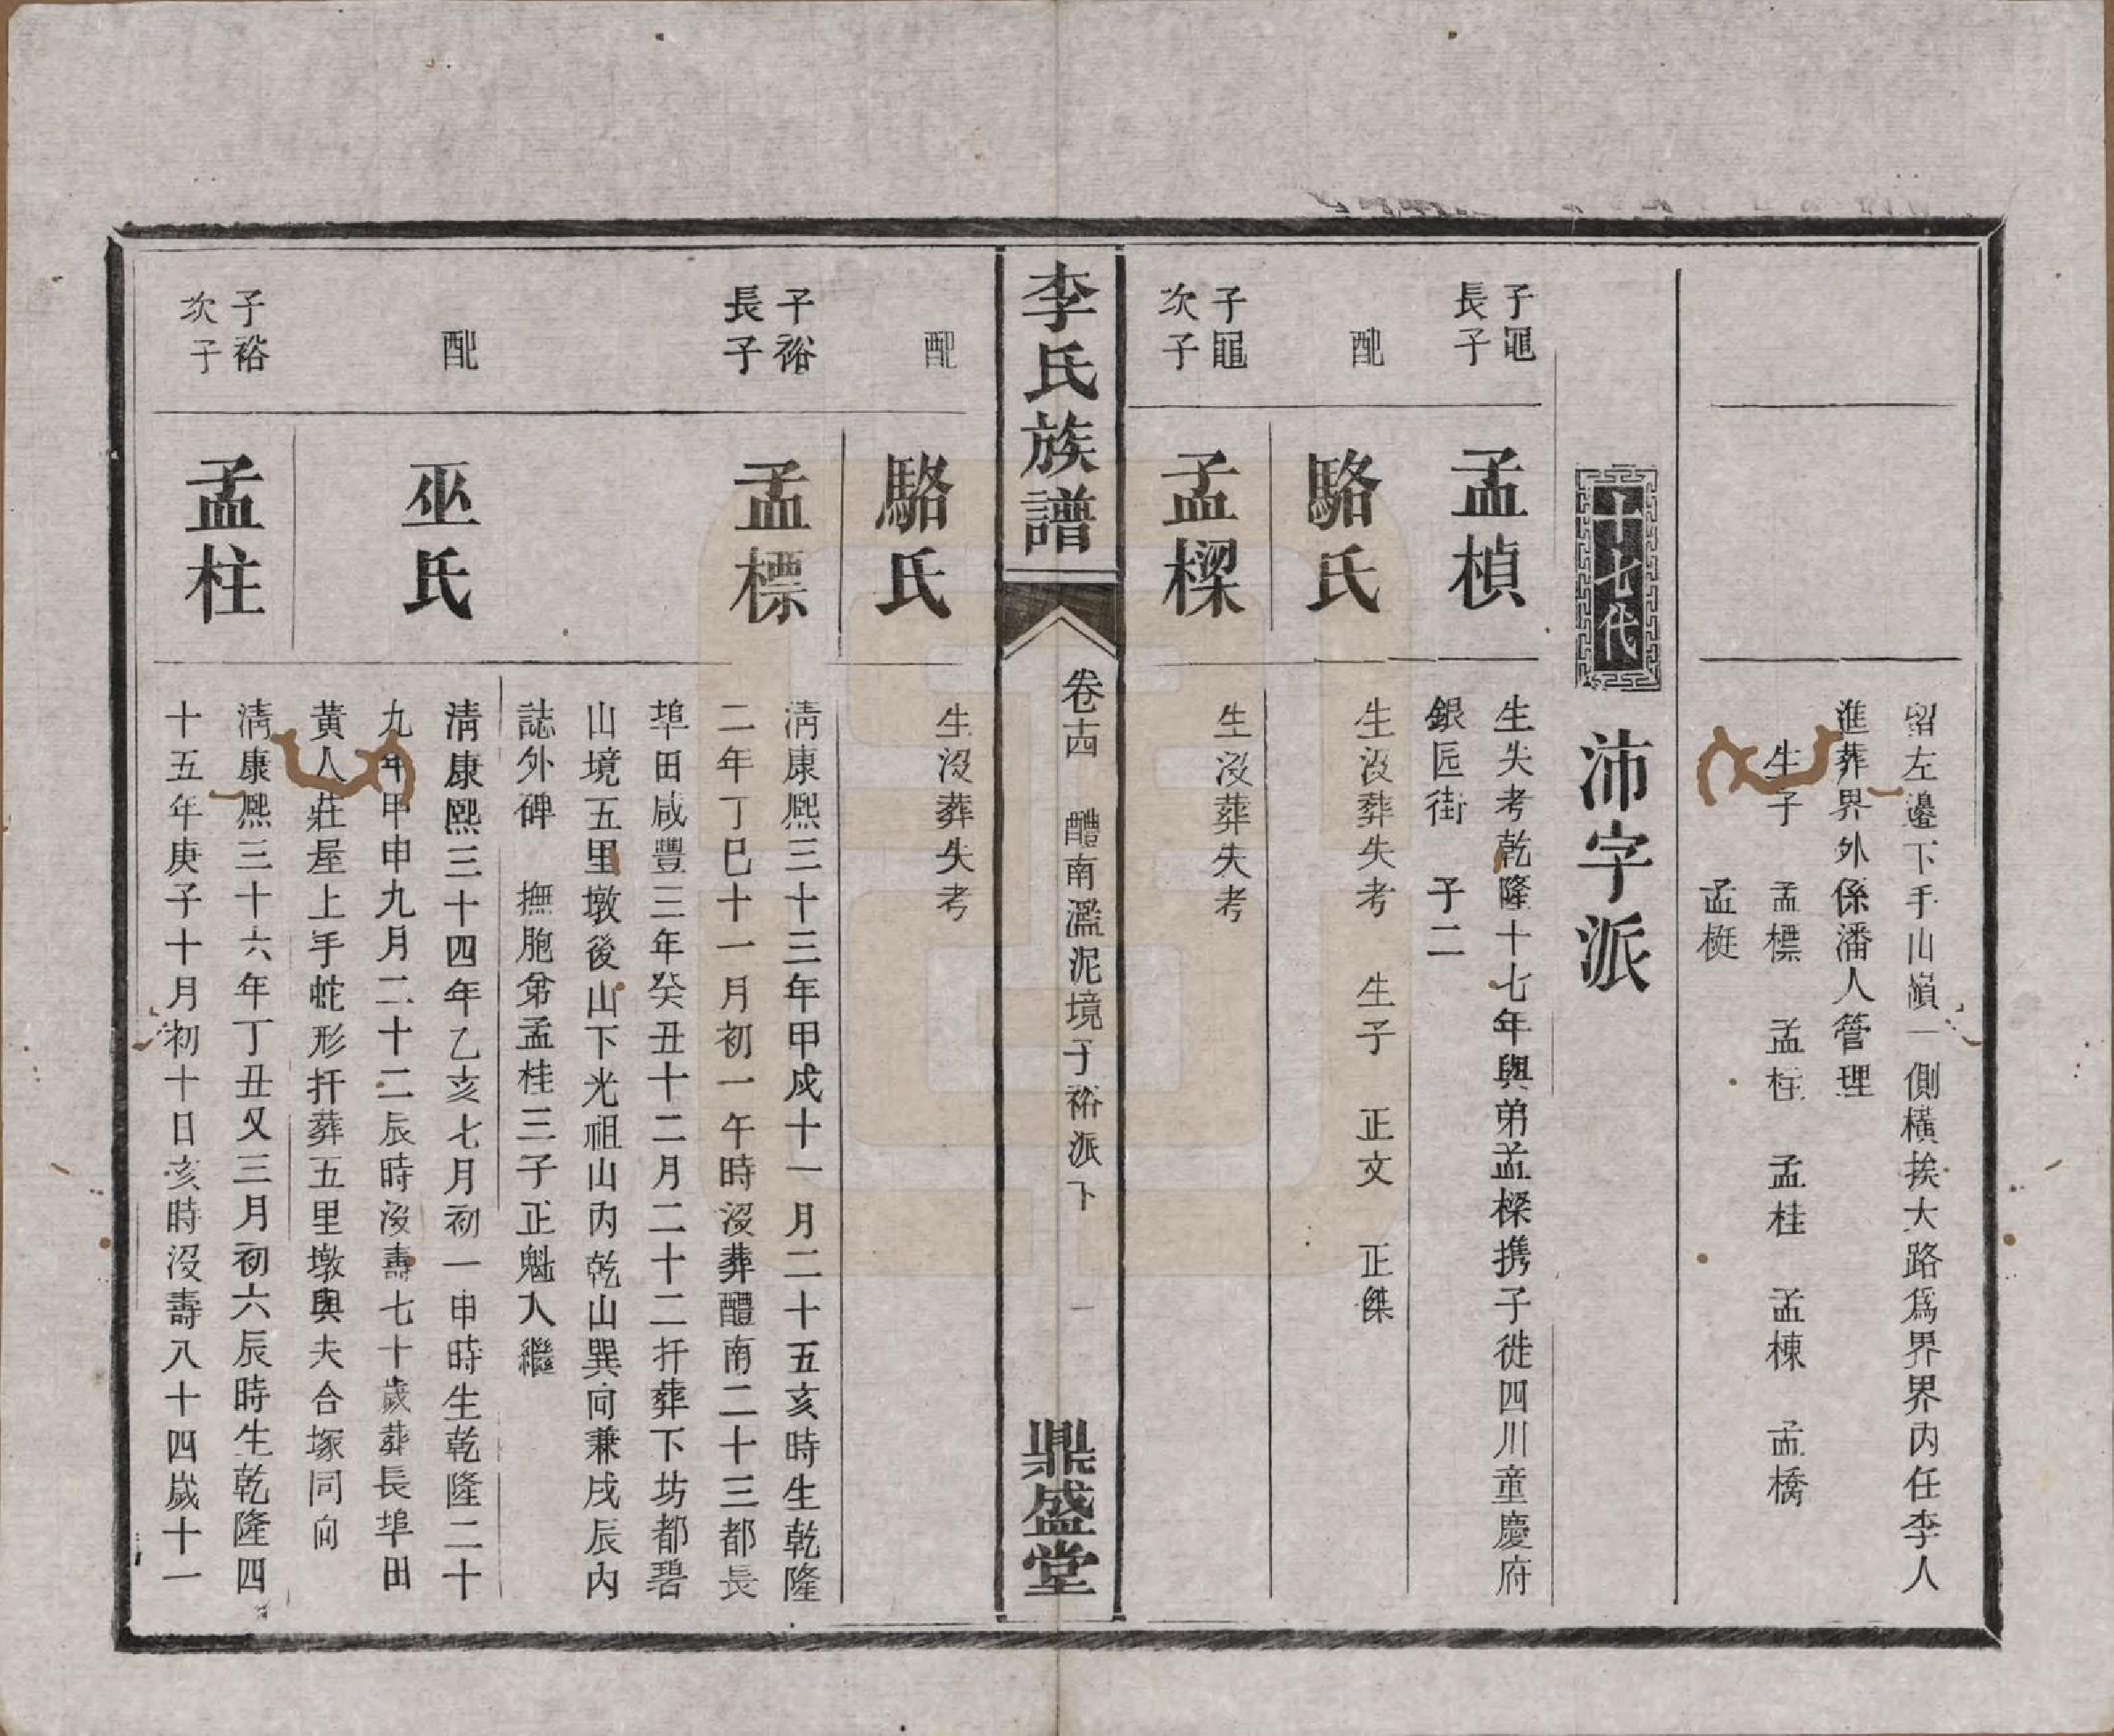 留左邊下手山嶺一側橫挨大路爲界界内任李人
進葬界外係潘人管理
生子　孟標　孟柱　孟桂　孟棟　孟橋
孟梃
十七代　沛字派
子黽
長子
孟楨
生失考乾隆十七年與弟孟樑携子徙四川童慶府
銀匠街　子二
配
駱氏
生沒葬失考　生子　正文　正傑
子黽
次子
孟樑
生沒葬失考
李氏族譜
卷十四　醴南濫泥境子裕派下　一
鼎盛堂
配
駱氏
生沒葬失考
子裕
長子
孟標
淸康熙三十三年甲戍十一月二十五亥時生乾隆
二年丁巳十一月初一午時沒葬醴南二十三都長
埠田咸豐三年癸丑十二月二十二扦葬下坊都碧
山境五里墩後山下光祖山内乾山巽向兼戌辰内
誌外碑　撫胞弟孟桂三子正魁入繼
配
巫氏
淸康熙三十四年乙亥七月初一申時生乾隆二十
九年甲申九月二十二辰時沒壽七十歲葬長埠田
黃人莊屋上手蛇形扦葬五里墩與夫合塚同向
子裕
次子
孟柱
淸康熙三十六年丁丑又三月初六辰時生乾隆四
十五年庚子十月初十日亥時沒壽八十四歲十一